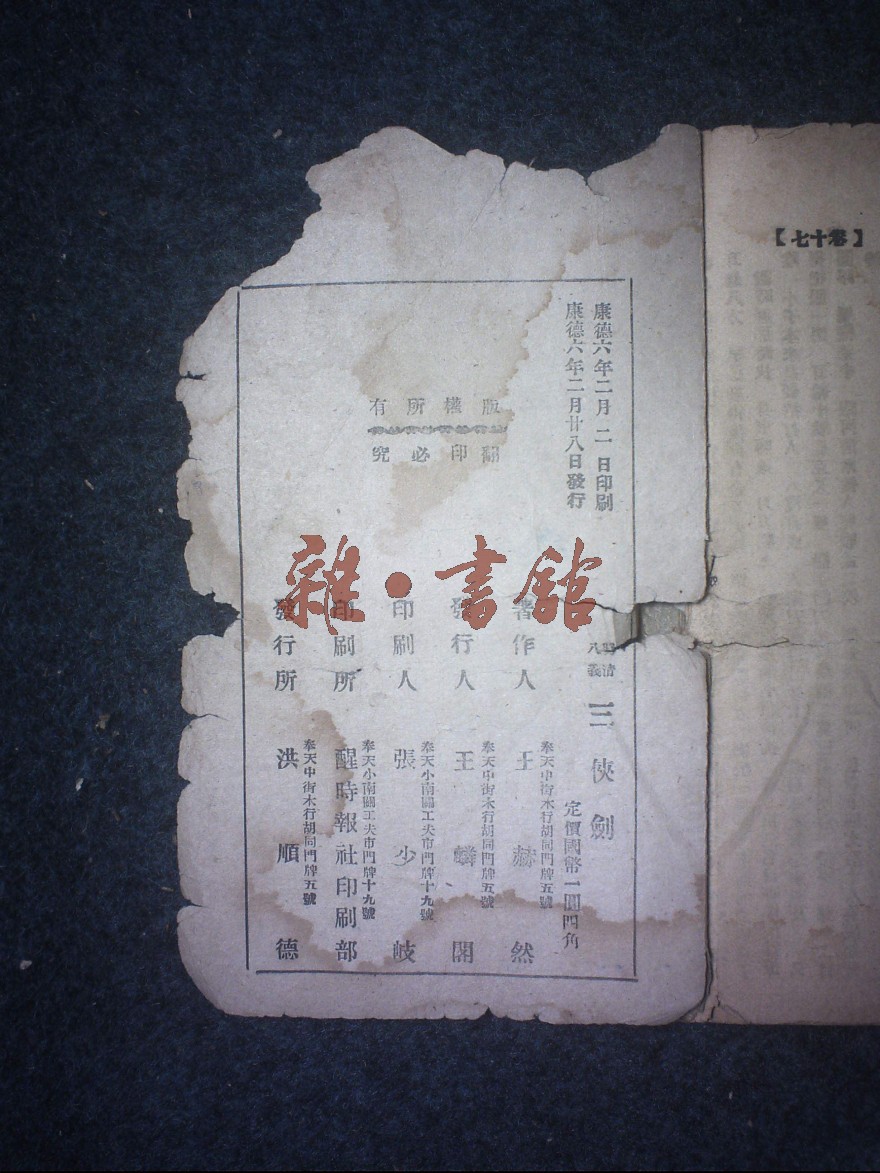 【卷十七】
康德六年二月二日印刷
康德六年二月廿八日發行
版權所有
翻印必究
清
八義
三俠劍
定價國幣一圓四角
著作人
奉天中街木行胡同門牌五號
王赫然
發行人
奉天中街木行胡同門牌五號
王麟閣
印刷人
奉天小南關工夫市門牌十九號
張少岐
印刷所
奉天小南關工夫市門牌十九號
醒時報社印刷部
發行所
奉天中街木行胡同門牌五號
洪順德
雜·書館